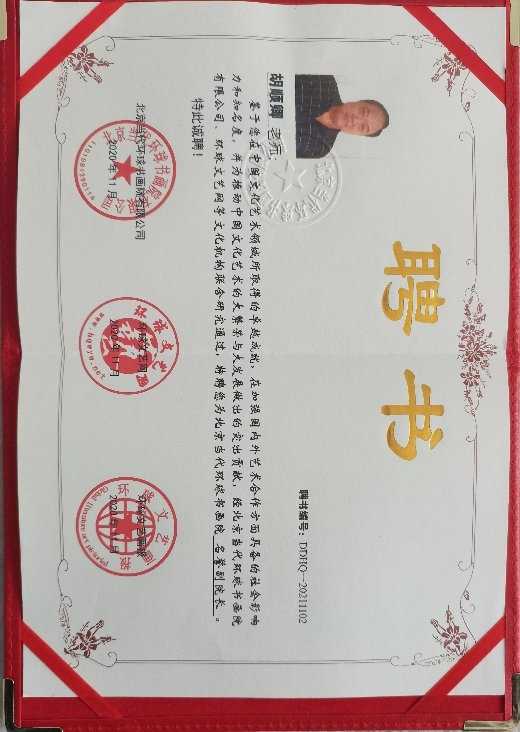 聘书
聘书编号：DDHQ—20211102
胡顺卿 老师：
鉴于您在中国文化艺术领域所取得的卓越成就，在加强国内外艺术合作方面具备的社会影响
力和知名度，并为推动中国文化艺术的大繁荣与大发展做出的突出贡献，经北京当代环球书画院
有限公司、环球文艺网等文化机构联合研究通过，特聘您为北京当代环球书画院 名誉副院长 。
特此诚聘！
北京当代环球书画院有限公司
2020年11月
环球文艺网
2020年11月
www.hqwyw.net
2020年11月